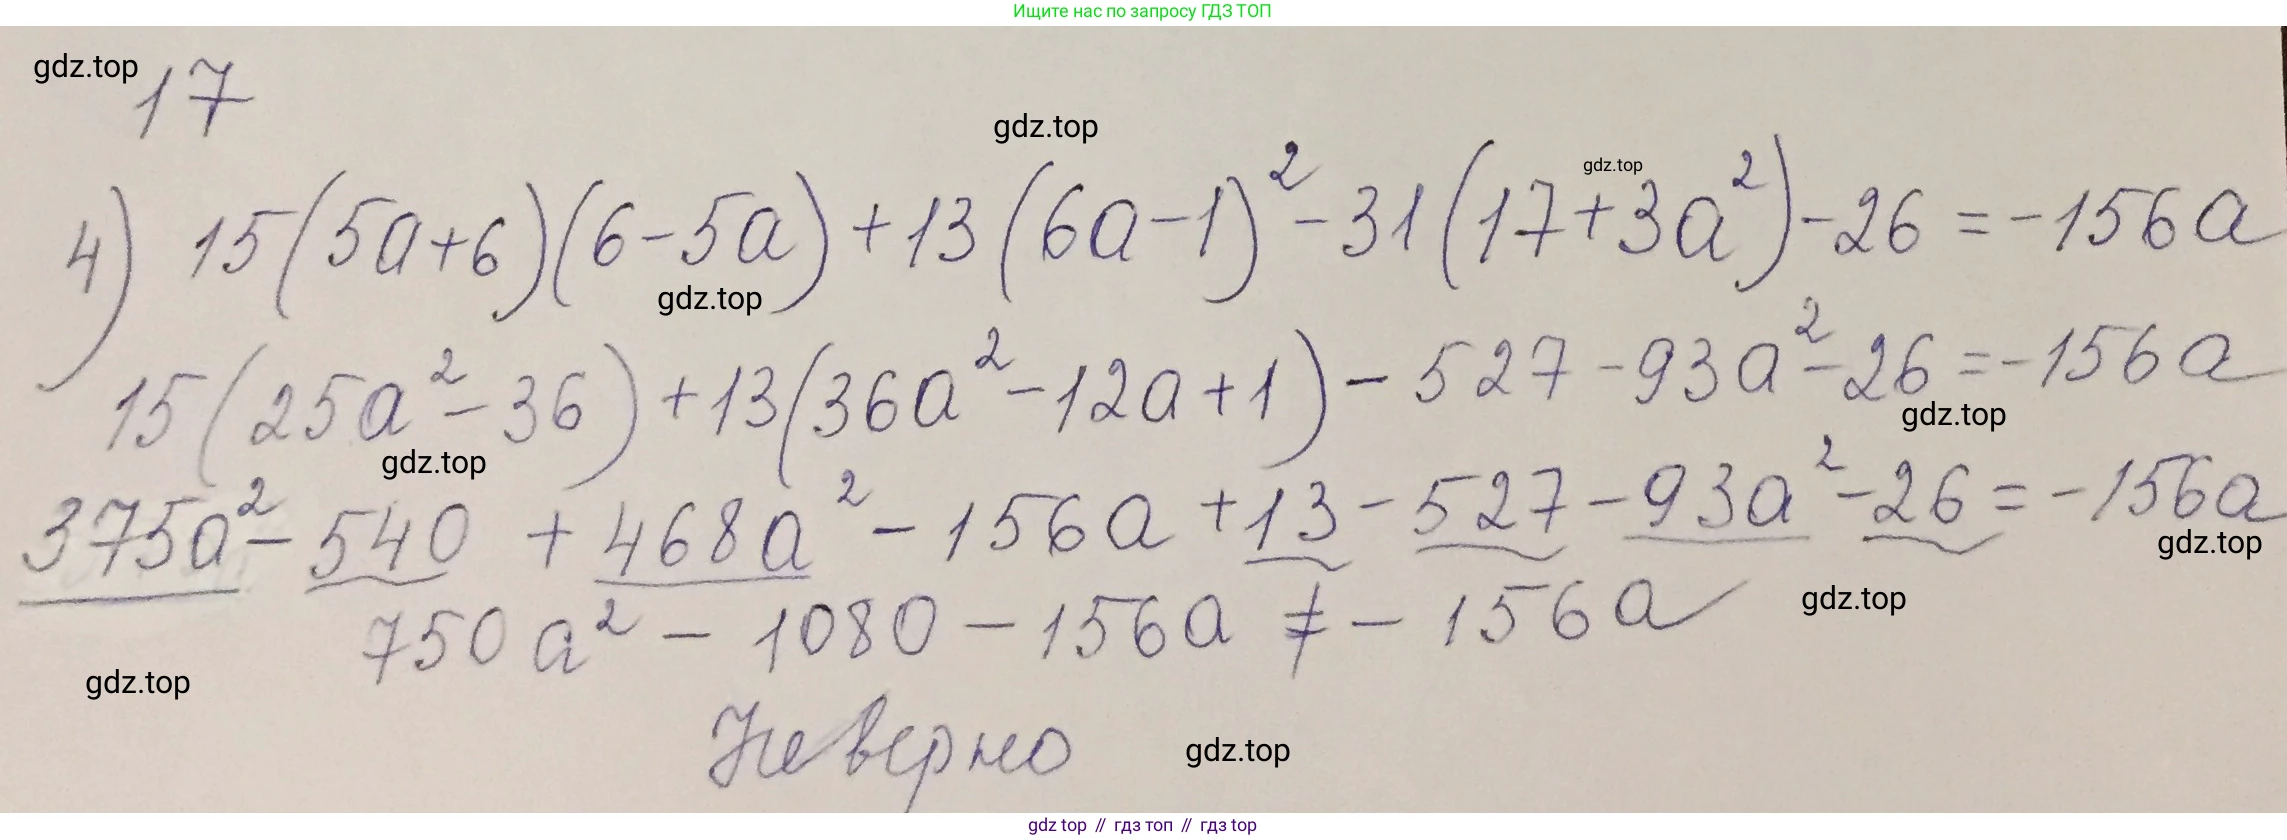 Ищите нас по запросу ГДЗ ТОП
gdz.top
17
gdz.top
gdz.top
4) 15(5a+6)(6-5a)+13(6a-1)²-31(17+3a²)-26=-156a
gdz.top
15(25a²-36)+13(36a²-12a+1)-527-93a²-26=-156a
gdz.top
gdz.top
375a²-540+468a²-156a+13-527-93a²-26=-156a
gdz.top
750a²-1080-156a≠-156a
gdz.top
gdz.top
Неверно
gdz.top
gdz top // гдз топ // gdz top